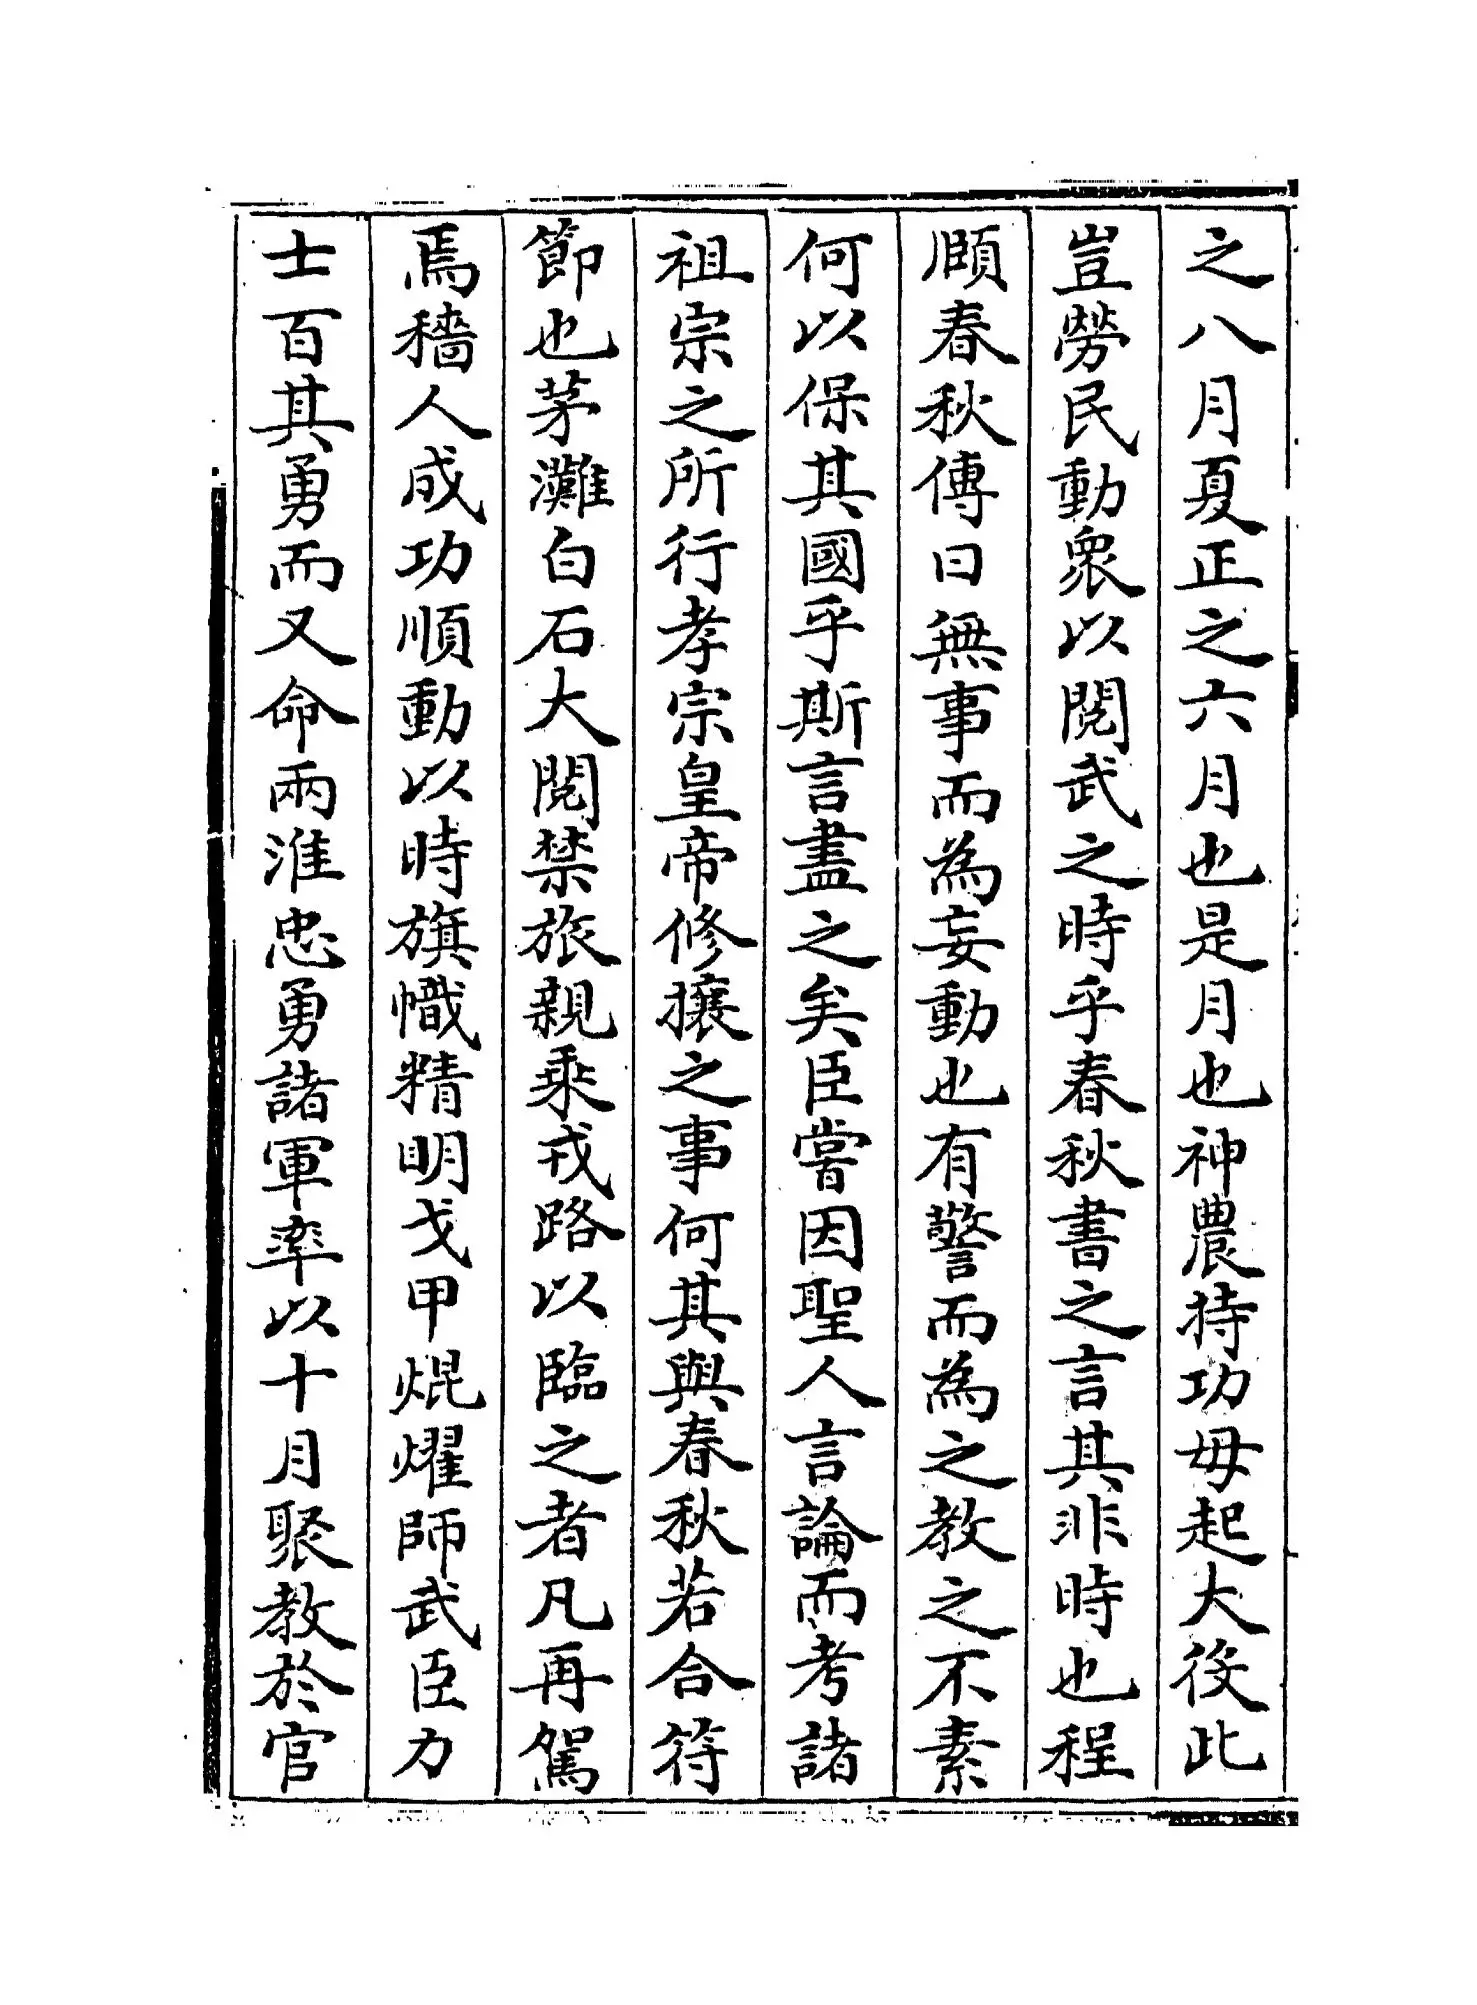 之八月夏正之六月也是月也神農持功毋起大役此
豈勞民動衆以閱武之時乎春秋書之言其非時也程
頤春秋傳曰無事而為妄動也有警而為之教之不素
何以保其國乎斯言盡之矣臣嘗因聖人言論而考諸
祖宗之所行孝宗皇帝修攘之事何其與春秋若合符
節也茅灘白石大閱禁旅親乘戎路以臨之者凡再駕
焉穡人成功順動以時旗幟精明戈甲焜燿師武臣力
士百其勇而又命兩淮忠勇諸軍率以十月聚教於官